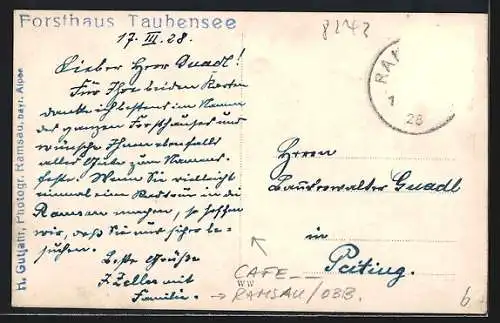 Forsthaus Taubensee
17. III. 28.
8242
Lieber Herr Guadl!
Für Ihre beiden Karten
danke ich bestens im Namen
des ganzen Forsthauses und
wünsche Ihnen ebenfalls
alles Gute zum Namens-
feste. Wenn Sie vielleicht
einmal eine Radtour in die
Ramsau machen, so hoffen
wir, daß Sie uns sicher be-
suchen.
Beste Grüße
J. Zeller mit
Familie.
H. Gutjahr, Photogr. Ramsau, bayr. Alpen
RAM
1
28
Herrn
Guadl
in
Peiting.
CAFE
WW
RAMSAU/OBB.
b